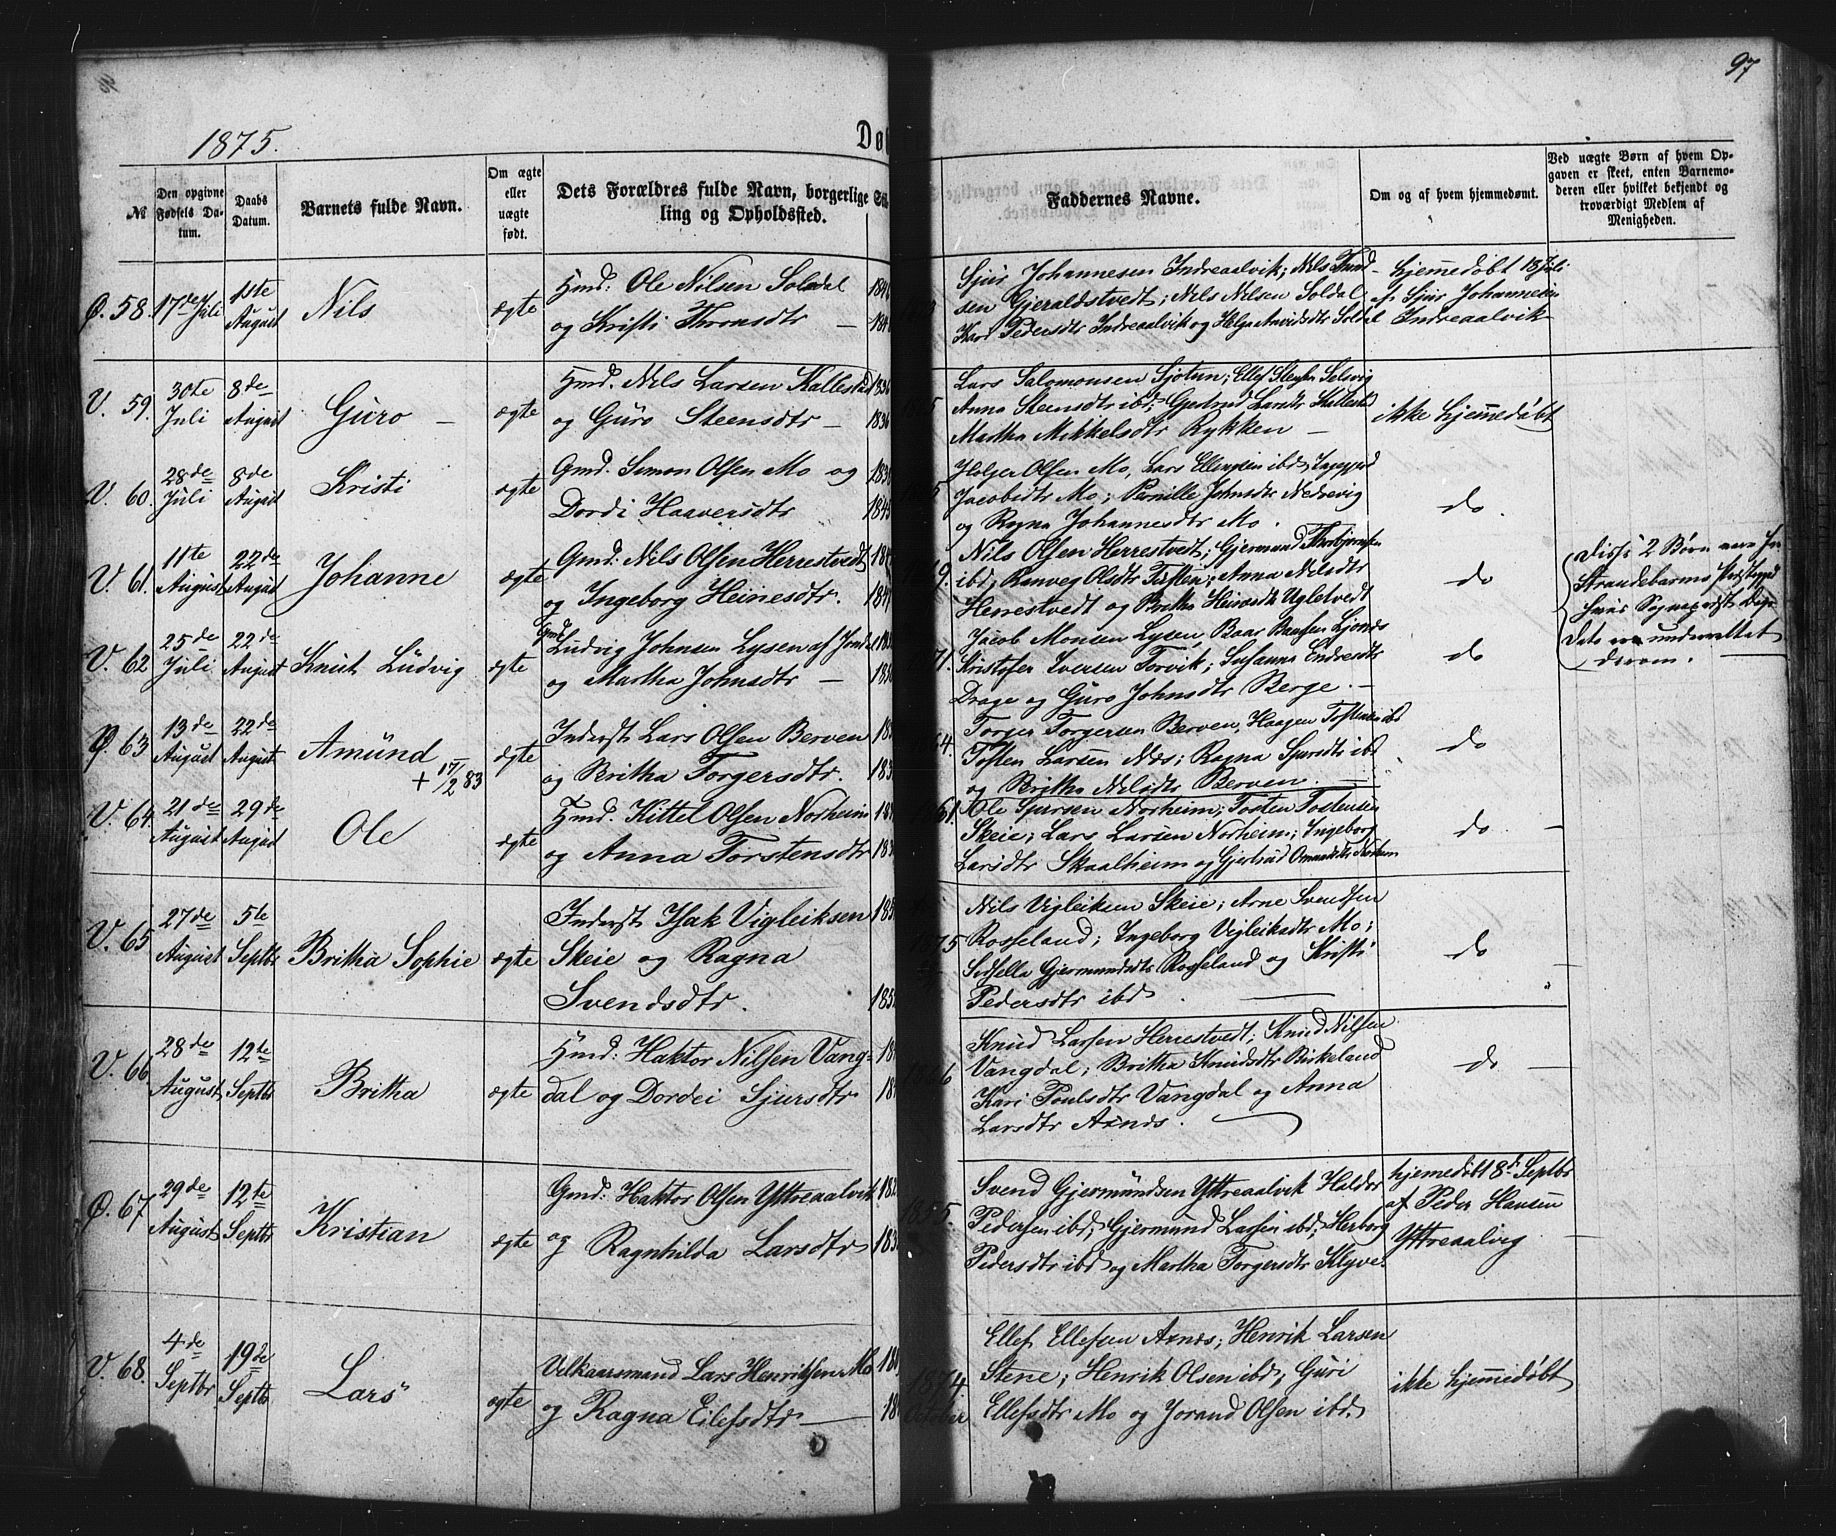 97
1875.
Dø
№
Den opgivne Fødsels Datum.
Daabs Datum.
Barnets fulde Navn.
Om ægte eller uægte født.
Dets Forældres fulde Navn, borgerlige Stilling og Opholdssted.
Faddernes Navne.
Om og af hvem hjemmedøbt.
Ved uægte Børn af hvem Opgaven er skeet, enten Barnemoderen eller hvilket bekjendt og troværdigt Medlem af Menigheden.
Ø. 58. 17de Juli 1ste August
Nils
ægte
Hmd: Ole Nilsen Soldal
og Kristi Thomsdtr —
Sjur Johannesen Indreaalvik; Nils
sen Gjeraldstvedt; Nils Nilsen Soldal
Kari Pedersdtr Indreaalvik og Helga Soldal
hjemmedøbt 18 Juli
af Sjur Johannesen
Indreaalvik
V. 59. 30te Juli 8de August
Guro —
ægte
Hmd. Nils Larsen Kallestad 1836
og Guro Steensdtr — 1836
Lars Salomonsen Sjotun; Ellef Selsvig
Anna Steensdtr ibd; Gjertrud Larsdtr Kallestad
Martha Mikkelsdtr Rykken —
ikke hjemmedøbt
V. 60. 28de Juli 8de August
Kristi
ægte
Gmd. Simon Olsen Mo og
Dordi Haaversdtr
Holger Olsen Mo, Lars Ellingsen ibd;
Jacobsdtr Mo; Pernille Johnsdtr Nedrevig
og Ragna Johannesdtr Mo.
do.
V. 61. 11te August 22de August
Johanne
ægte
Gmd: Nils Olsen Herrestvedt
og Ingeborg Heinesdtr.
Nils Olsen Herrestvedt; Gjermund Thorbjørnsen
ibd; Ranveg Olsdtr Tosten; Anna Nilsdtr
Herrestvedt og Britha Ugletvedt
do
Disse 2 Børn ere
Strandebarms Præstegjeld
hvis Sognepræst
Dets er underrettet
derom. —
V. 62 25de Juli 22de August
Knut Ludvig
ægte
Gmd Ludvig Johnsen Lysen af
og Martha Johnsdtr —
Jacob Monsen Lysen, Baar Ljones
Kristofer Iversen Torvik; Susanna Endresdtr
Drage og Guro Johnsdtr Berge. —
do
Ø. 63 13de August 22de August
Amund
+ 17/2 83
ægte
Inderst Lars Olsen Berven
og Britha Torgersdtr.
64.
Torger Torgersen Berven, Haagen Tostensen ibd
Tosten Larsen Næs; Ragna Sjursdtr ibd
og Britha Nilsdtr Berven. —
do
V. 64. 21de August 29de August
Ole
ægte
Hmd. Kittel Olsen Norheim
og Anna Torstensdtr
1861.
Ole Sjursen Norheim; Tosten Tostensen
Skeie; Lars Larsen Norheim; Ingeborg
Larsdtr Skaalheim og Gjertrud Norheim
do. —
V. 65 27de August 5te Septbr
Britha Sophie
ægte
Inderst Isak Vigleiksen
Skeie og Ragna
Svendsdtr.
1875
Nils Vigleiksen Skeie; Arne Svendsen
Rosseland; Ingeborg Vigleiksdtr Mo;
Sidsella Gjermundsdtr Rosseland og Kristi
Pedersdtr ibd. —
do —
V. 66 28de August 12te Septbr
Britha
ægte
Hmd: Haktor Nilsen Vang-
dal og Dordei Sjursdtr
Knud Larsen Herrestvedt; Knud Nilsen
Vangdal; Britha Knudsdtr Birkeland
Kari Poulsdtr Vangdal og Anna
Larsdtr Axnes.
do —
Ø. 67. 29de August 12te Septbr
Kristian
ægte
Gmd: Haktor Olsen Yttreaalvik
og Ragnhilda Larsdtr
Svend Gjermundsen Yttreaalvik Haldor
Pedersen ibd; Gjermund Larsen ibd; Herborg
Pedersdtr ibd og Martha Torgersdtr Klyve.
hjemmedøbt 8de Septbr
af Peder Hansen
Yttreaalvig —
V. 68. 4de Septbr 19de Septbr
Lars
ægte
Velkaarsmand Lars Henriksen Mo
og Ragna Eilefsdtr —
1874.
October
Ellef Ellefsen Axnes; Henrik Larsen
Steine; Henrik Olsen ibd; Guri
Ellefsdtr Mo og Jorand Olsen ibd.
ikke hjemmedøbt